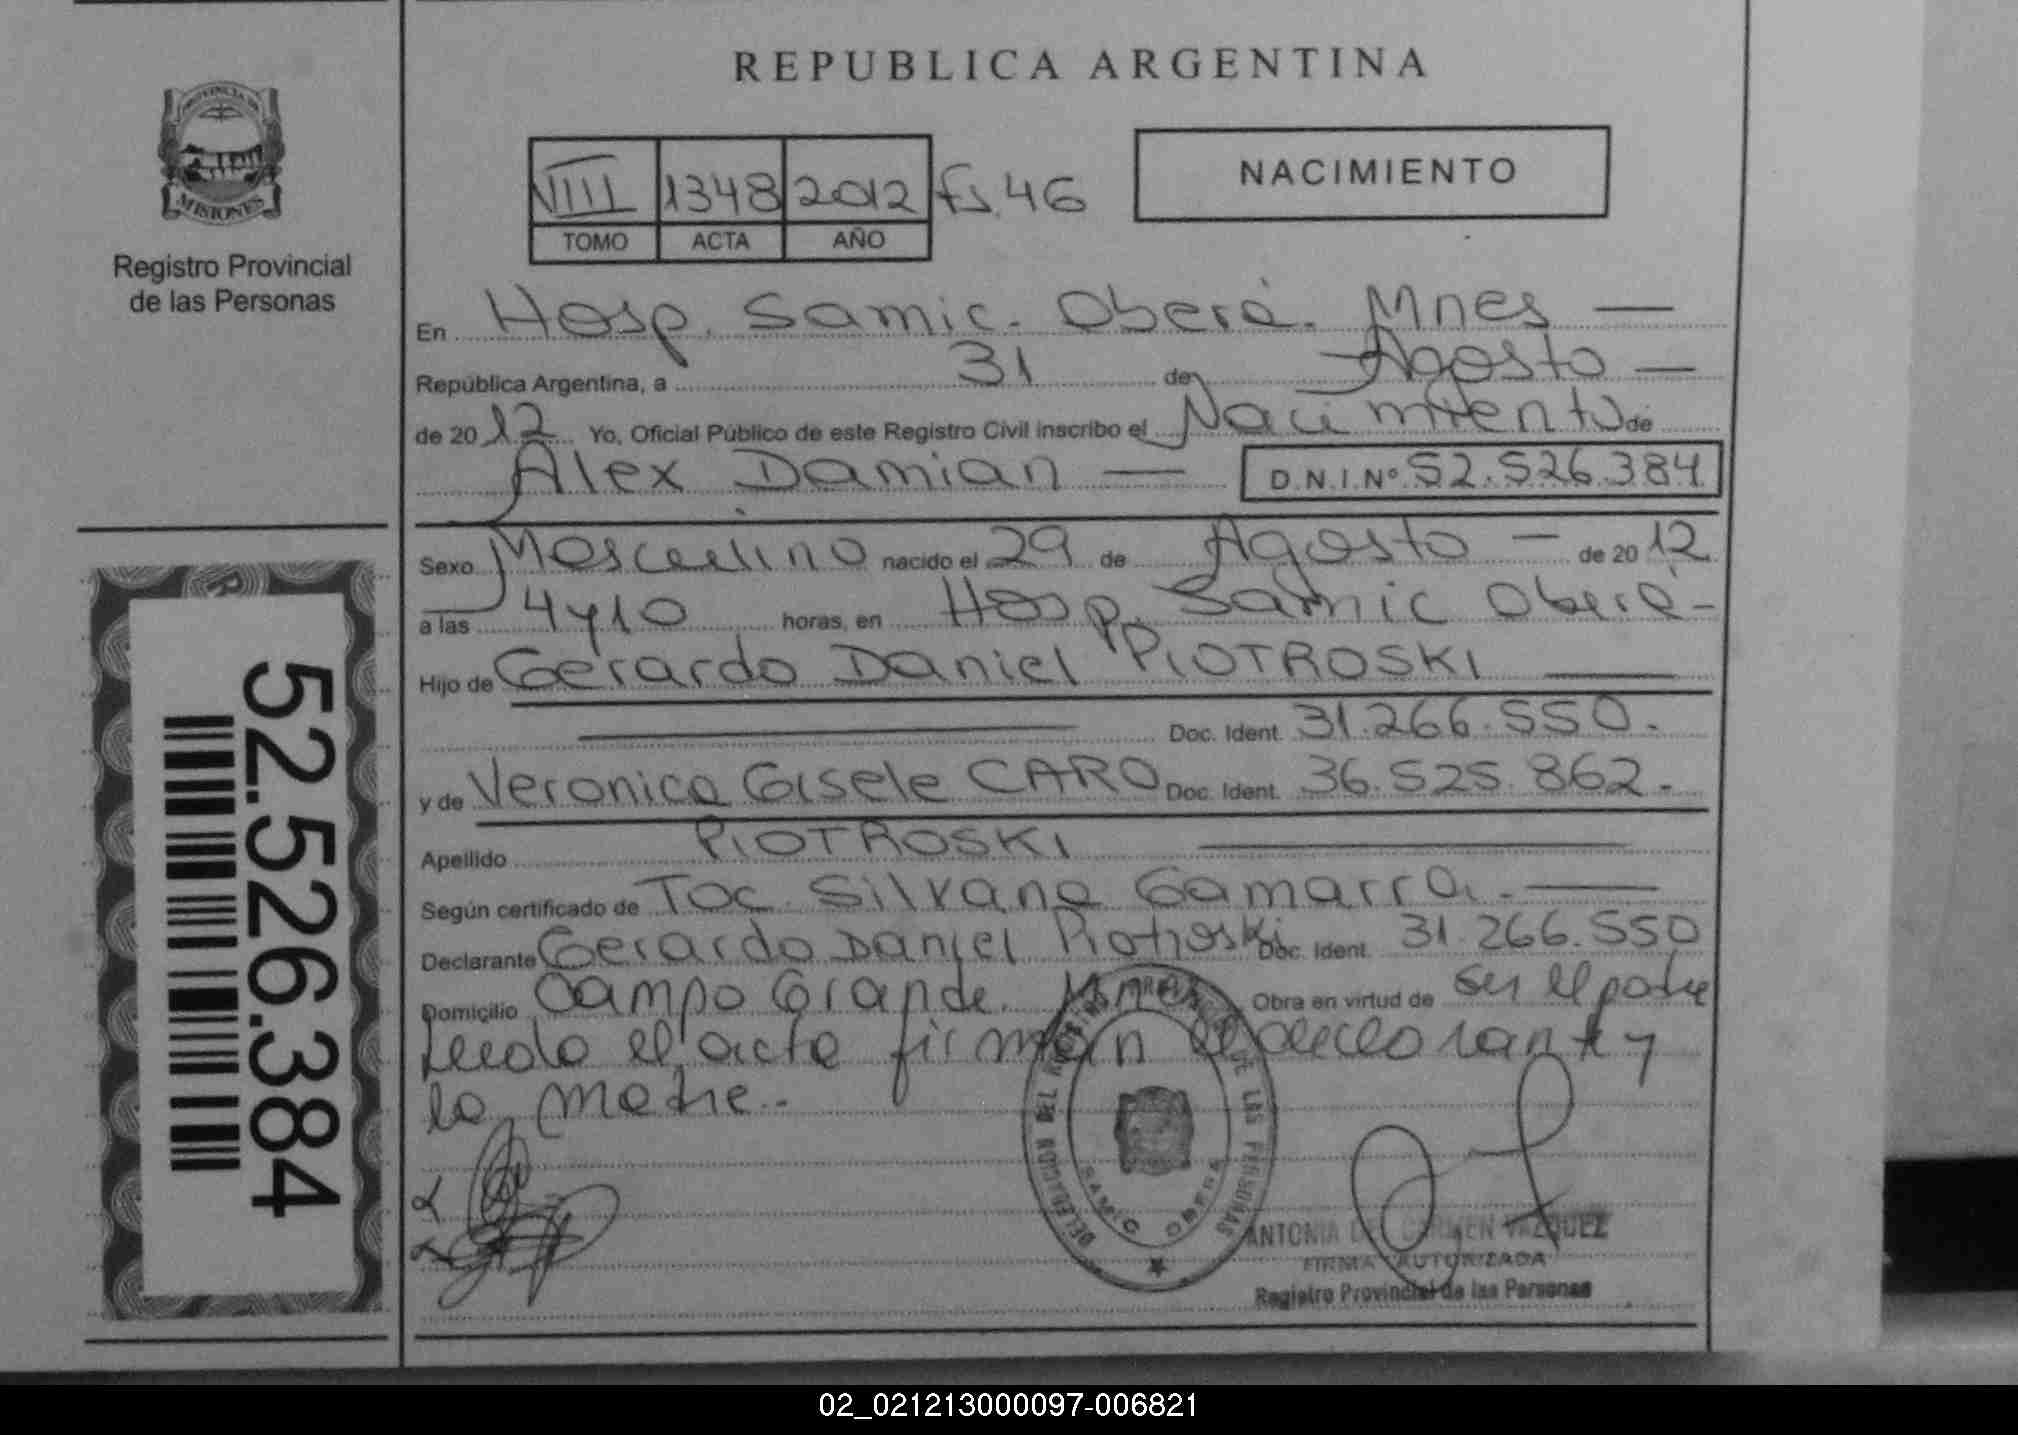 REPUBLICA ARGENTINA
PROVINCIA DE
MISIONES
Registro Provincial
de las Personas
VIII 1348 2012 fs. 46
TOMO ACTA AÑO
NACIMIENTO
En Hosp. Samic. Oberá. Mnes —
República Argentina, a 31 de Agosto —
de 2012 Yo, Oficial Público de este Registro Civil inscribo el Nacimiento de
Alex Damian — D.N.I.Nº 52.526.384
Sexo Masculino nacido el 29 de Agosto — de 2012
a las 4y10 horas, en Hosp. Samic Oberá -
Hijo de Gerardo Daniel PIOTROSKI —
Doc. Ident. 31.266.550.
y de Veronica Gisele CARO Doc. Ident. 36.525.862.
Apellido PIOTROSKI —
Según certificado de Toc. Silvana Gamarra. —
Declarante Gerardo Daniel Piotroski Doc. Ident. 31.266.550
Domicilio Campo Grande. Mnes Obra en virtud de ser el padre
Leida el acta firman el declarante y
la madre.-
DELEGACION DEL REGISTRO PROVINCIAL DE LAS PERSONAS
SAMIC OBERA
ANTONIA DEL CARMEN VAZQUEZ
FIRMA AUTORIZADA
Registro Provincial de las Personas
52.526.384
02_021213000097-006821